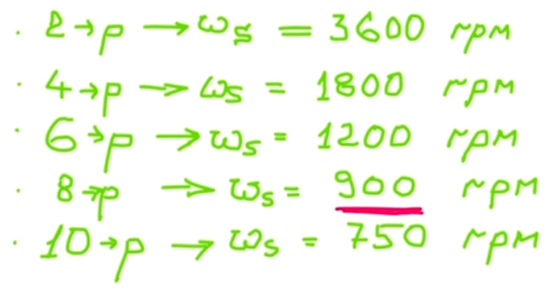 · 2→p → ωs = 3600 rpm
· 4→p → ωs = 1800 rpm
· 6→p → ωs = 1200 rpm
· 8→p → ωs = 900 rpm
· 10→p → ωs = 750 rpm